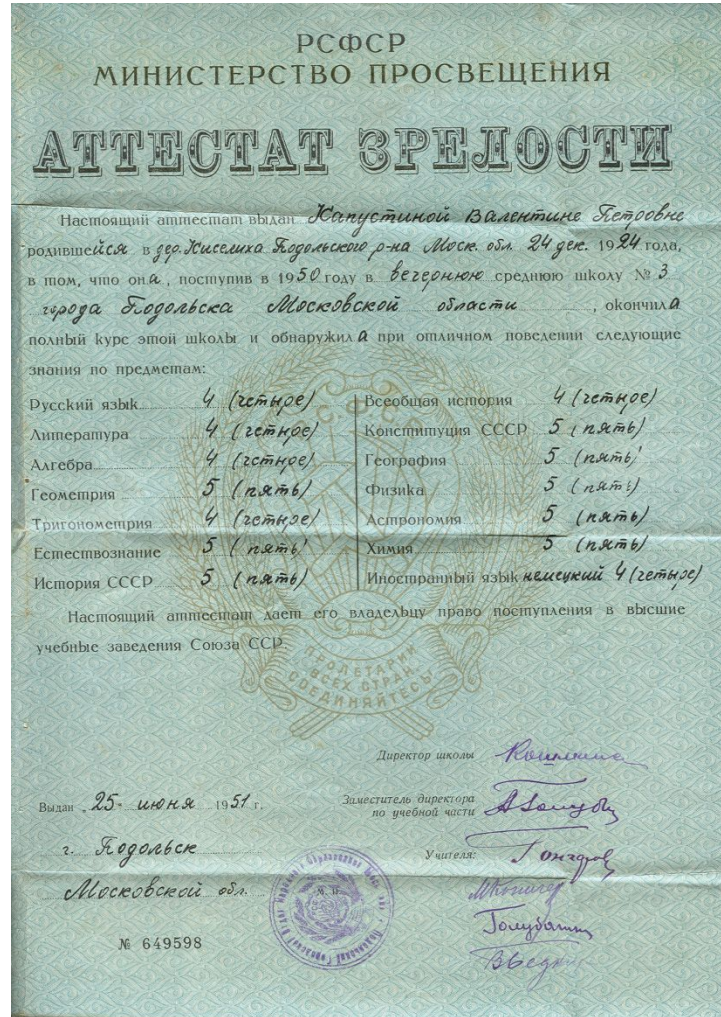 РСФСР
МИНИСТЕРСТВО ПРОСВЕЩЕНИЯ
АТТЕСТАТ ЗРЕЛОСТИ
Настоящий аттестат выдан Капустиной Валентине Петровне
родившейся в дер. Жиселиха Подольского р-на Моск. обл. 24 дек. 1924 года,
в том, что она, поступив в 1950 году в вечернюю среднюю школу № 3
города Подольска Московской области, окончила
полный курс этой школы и обнаружила при отличном поведении следующие
знания по предметам:
Русский язык 4 (четыре)
Литература 4 (четыре)
Алгебра 4 (четыре)
Геометрия 5 (пять)
Тригонометрия 4 (четыре)
Естествознание 5 (пять)
История СССР 5 (пять)
Всеобщая история 4 (четыре)
Конституция СССР 5 (пять)
География 5 (пять)
Физика 5 (пять)
Астрономия 5 (пять)
Химия 5 (пять)
Иностранный язык немецкий 4 (четыре)
Настоящий аттестат дает его владельцу право поступления в высшие
учебные заведения Союза ССР.
РСФСР
ПРОЛЕТАРИИ
ВСЕХ СТРАН,
СОЕДИНЯЙТЕСЬ!
Директор школы
Выдан „25" июня 1951 г.
Заместитель директора
по учебной части
г. Подольск
Учителя:
Московской обл.
М. П.
№ 649598